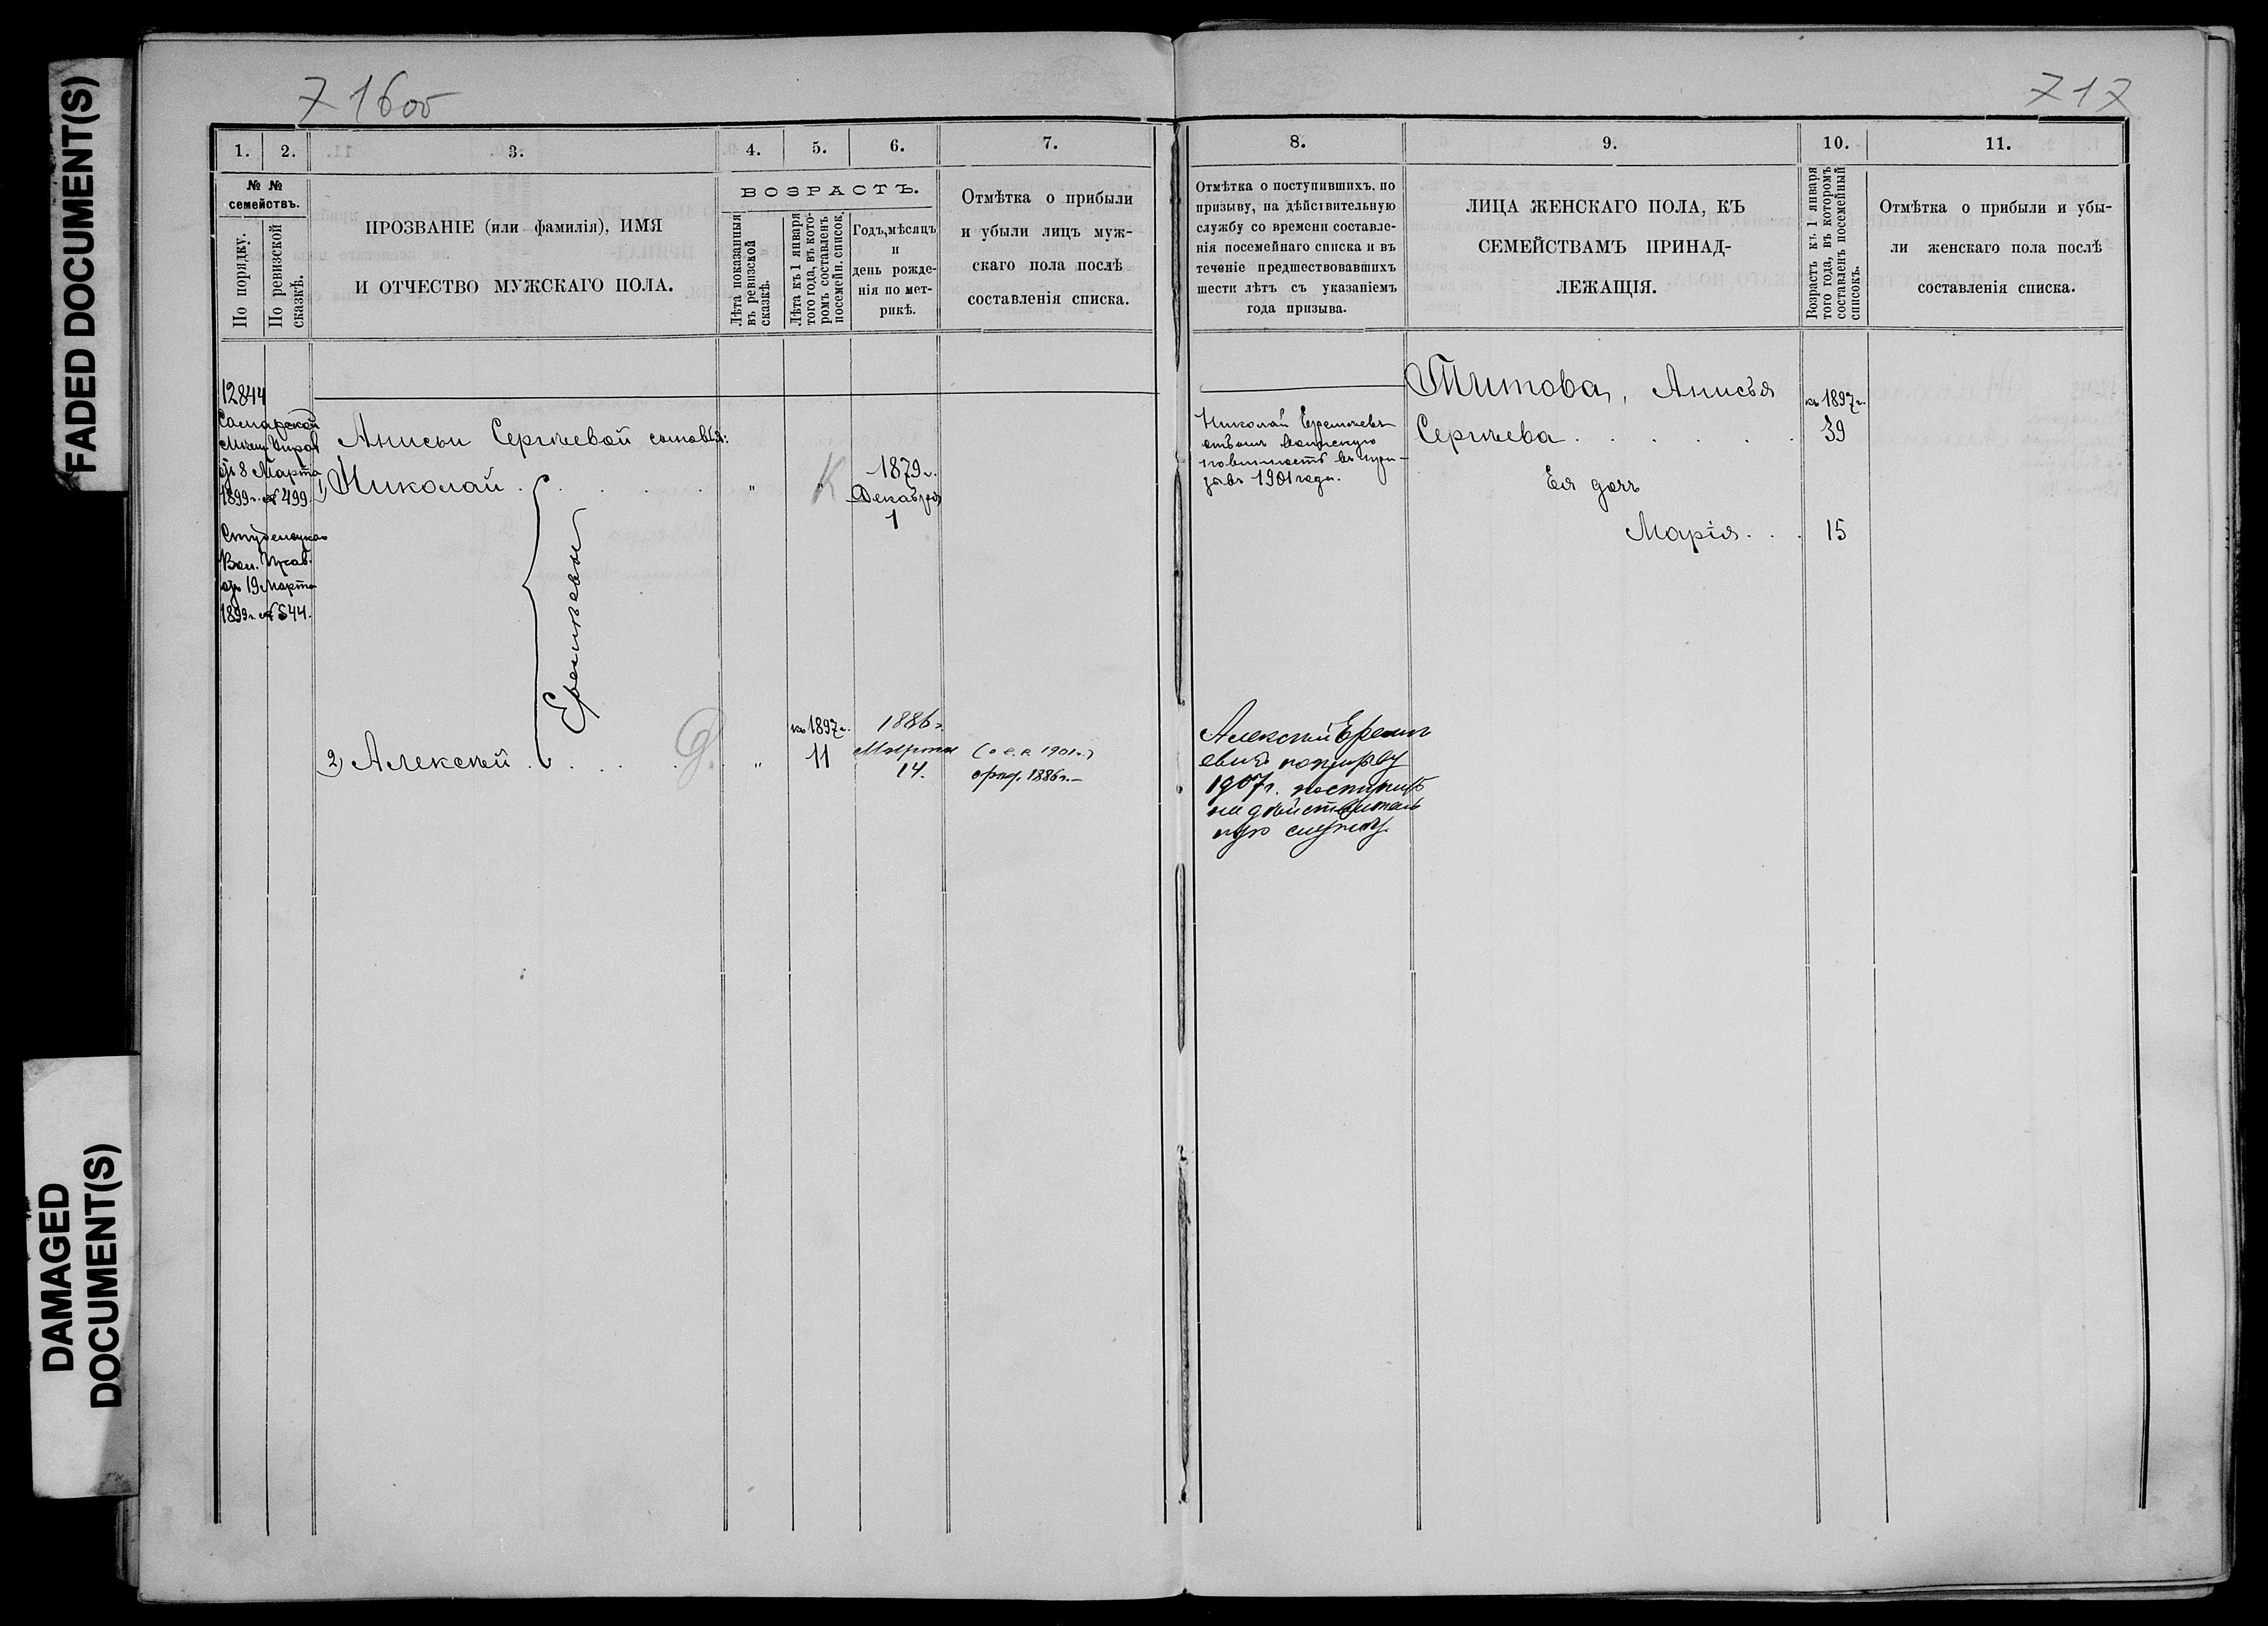 FADED DOCUMENT(S)
DAMAGED
DOCUMENT(S)
716об
1. 2. 3. 4. 5. 6. 7.
№ №
семействъ.
По порядку.
По ревизской
сказкѣ.
ПРОЗВАНІЕ (или фамилія), ИМЯ
И ОТЧЕСТВО МУЖСКАГО ПОЛА.
ВОЗРАСТЪ.
Лѣта показанныя
въ ревизской
сказкѣ.
Лѣта къ 1 января
того года, въ кото-
ромъ составленъ
посемейн. список.
Годъ, мѣсяцъ
и
день рожде-
нія по мет-
рикѣ.
Отмѣтка о прибыли
и убыли лицъ муж-
скаго пола послѣ
составленія списка.
12844
Самарской
Мѣщ. Управ
отъ 8 Марта
1899 г. № 499.
Студенецкаго
Вол. Прав.
отъ 19 Марта
1899 г. № 544.
Анисьи Сергѣевой сыновья:
1) Николай . . . . " " К 1879 г.
Декабря
1
Еремѣевы
2) Алексѣй . . . . " къ 1897 г.
11
1886 г.
Марта
14.
1901 г.)
1886 г.
717
8. 9. 10. 11.
Отмѣтка о поступившихъ, по
призыву, на дѣйствительную
службу со времени составле-
нія посемейнаго списка и въ
теченіе предшествовавшихъ
шести лѣтъ съ указаніемъ
года призыва.
ЛИЦА ЖЕНСКАГО ПОЛА, КЪ
СЕМЕЙСТВАМЪ ПРИНАД-
ЛЕЖАЩІЯ.
Возрастъ къ 1 января
того года, въ которомъ
составленъ посемейный
списокъ.
Отмѣтка о прибыли и убы-
ли женскаго пола послѣ
составленія списка.
Титова, Анисья
Сергѣева . . . . . .
къ 1897 г.
39
Ея дочь
Марія . . . 15
Николай Еремѣевъ
отбылъ воинскую
повинность въ при-
зывъ 1901 года.
Алексѣй Еремѣ
евичъ по призыву
1907 г. поступилъ
на дѣйствитель
ную службу